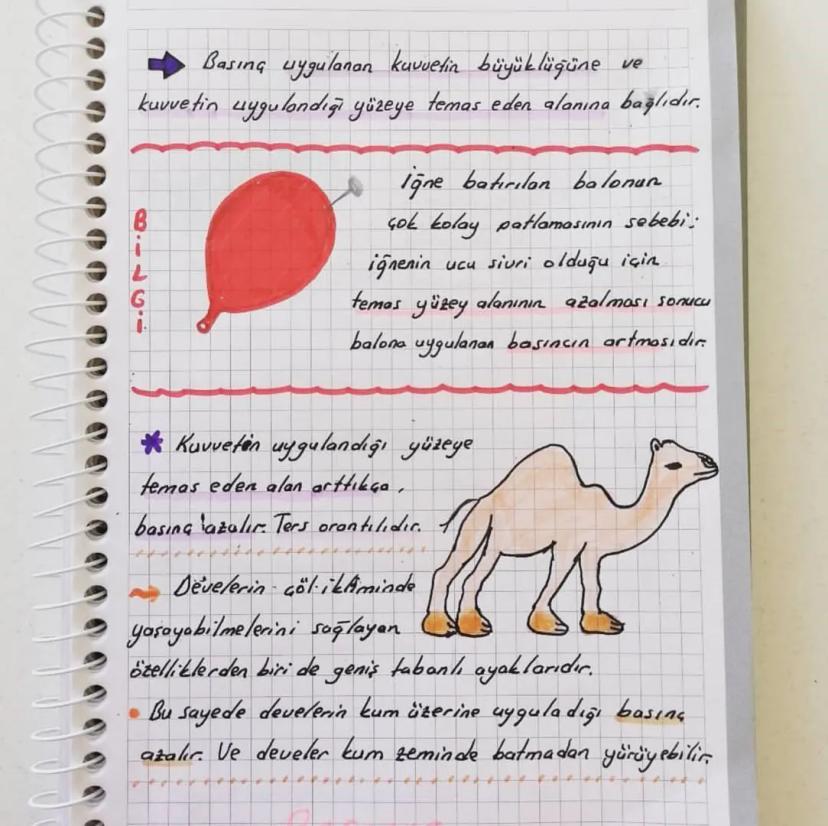 Basınç uygulanan kuvvetin büyüklüğüne ve
kuvvetin uygulandığı yüzeye temas eden alanına bağlıdır.
BİLGİ
İğne batırılan balonun
çok kolay patlamasının sebebi;
iğnenin ucu sivri olduğu için
temas yüzey alanının azalması sonucu
balona uygulanan basıncın artmasıdır.
* Kuvvetin uygulandığı yüzeye
temas eden alan arttıkça,
basınç azalır. Ters orantılıdır.
Develerin çöl ikliminde
yaşayabilmelerini sağlayan
özelliklerden biri de geniş tabanlı ayaklarıdır.
• Bu sayede develerin kum üzerine uyguladığı basınç
azalır. Ve develer kum zeminde batmadan yürüyebilir.